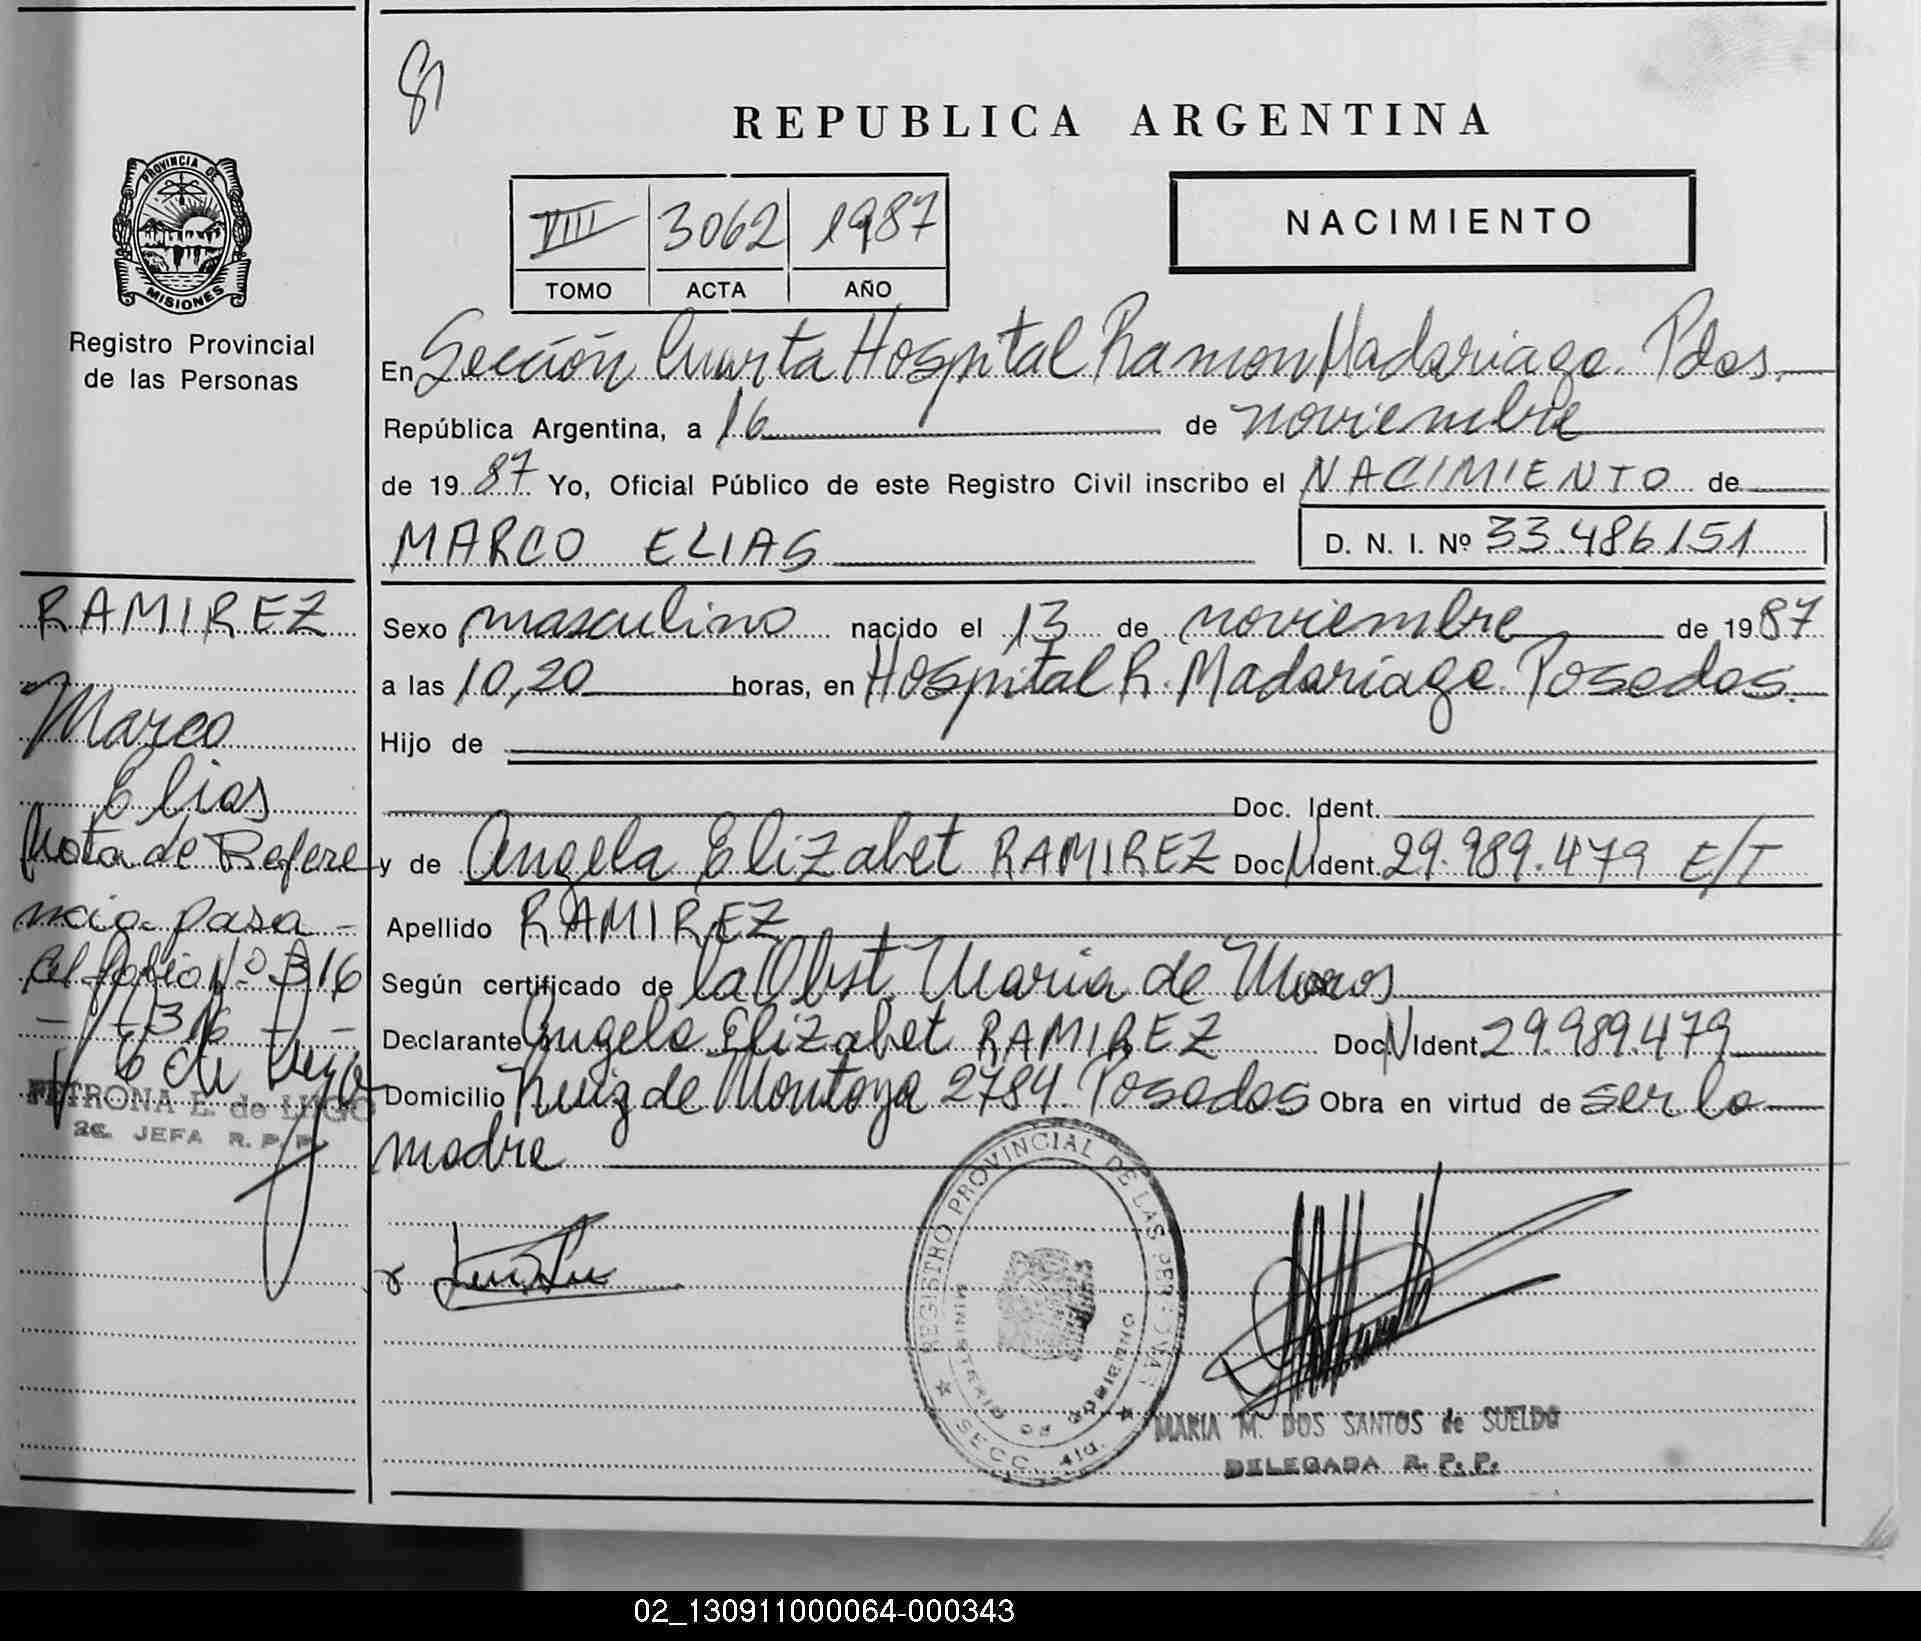 81
REPUBLICA ARGENTINA
PROVINCIA DE
MISIONES
Registro Provincial
de las Personas
VIII 3062 1987
TOMO ACTA AÑO
NACIMIENTO
En Sección Cuarta Hospital Ramon Madariaga. Pdas.
República Argentina, a 16 de noviembre
de 1987 Yo, Oficial Público de este Registro Civil inscribo el NACIMIENTO de
MARCO ELIAS D. N. I. Nº 33.486.151
Sexo masculino nacido el 13 de noviembre de 1987
a las 10,20 horas, en Hospital R. Madariaga. Posadas.
Hijo de
Doc. Ident.
y de Angela Elizabet RAMIREZ Doc. Ident. 29.989.479 E/T
Apellido RAMIREZ
Según certificado de la Obst Maria de Moros
Declarante Angela Elizabet RAMIREZ Doc. Ident. 29.989.479
Domicilio Ruiz de Montoya 2784. Posadas Obra en virtud de ser la
madre
RAMIREZ
Marco
Elias
Nota de Refere
ncia pasa
al folio Nº 316
- 316 - -
PETRONA E. de LUGO
2a. JEFA R. P. P.
REGISTRO PROVINCIAL DE LAS PERSONAS
MINISTERIO DE GOBIERNO
SECC. 4ta.
MARIA M. DOS SANTOS de SUELDO
DELEGADA R. P. P.
02_130911000064-000343